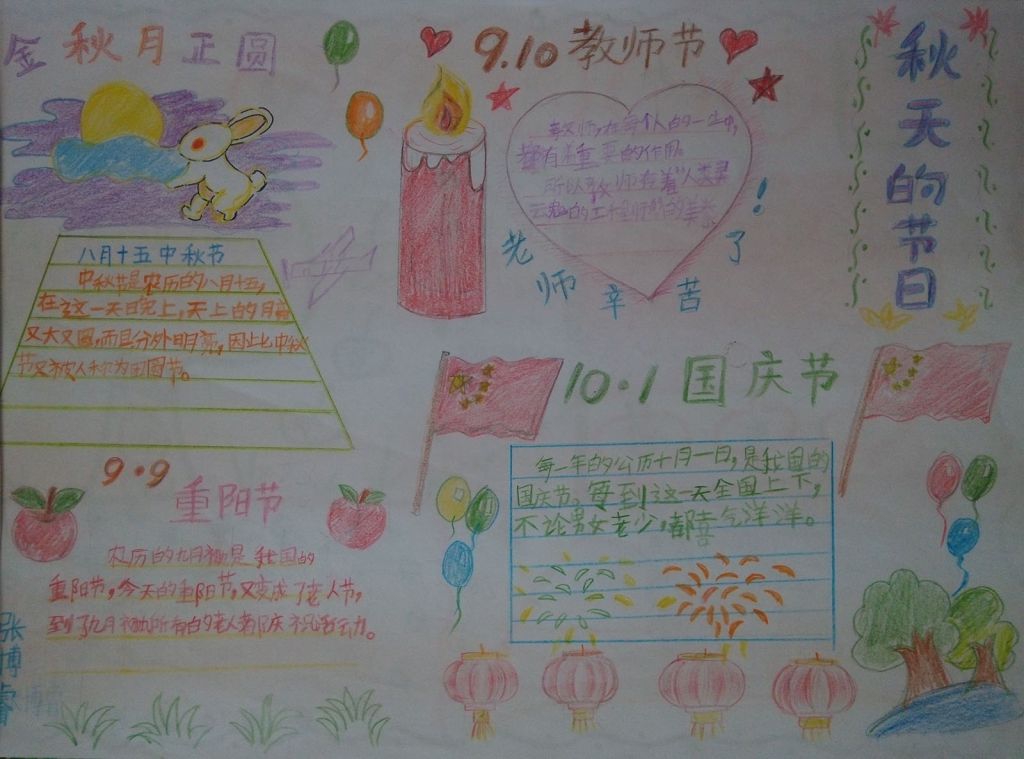 金秋月正圆
八月十五中秋节
中秋节是农历的八月十五,
在这一天晚上,天上的月亮
又大又圆,而且分外明亮,因此中秋
节又被人称为团圆节。
9.10教师节
教师,在每个人的一生中,
都有着重要的作用
所以教师有着"人类灵
老师辛苦了!
秋天的节日
10.1国庆节
每一年的公历十月一日,是我国的
国庆节,每到这一天全国上下,
不论男女老少,都喜气洋洋。
9.9
重阳节
农历的九月初九是我国的
重阳节,今天的重阳节,又变成了老人节,
到了九月初九所有的老人
张博睿
博睿